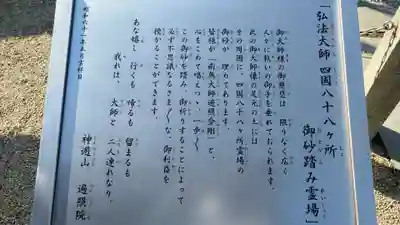 「弘法大師 四国八十八ヶ所
御砂踏み霊場」
御大師様の御慈悲は 限りなく広く
人々に救いの御手を垂れておられます。
此の御大師像の足元の土には
その周囲に、四国八十八ヶ所霊場の
御砂が 埋めてあります。
皆様、「南無大師遍照金剛」と、
心をこめて唱えつつ、一歩一歩
この御砂を踏み、御祈りすることによって
必ず不思議なるきづなが、御利益を
授かることができます。
あな嬉し 行くも 帰るも 留まるも
我れは、 大師と 二人連れなり。
神遊山 遍照院
昭和六十二年三月吉祥日